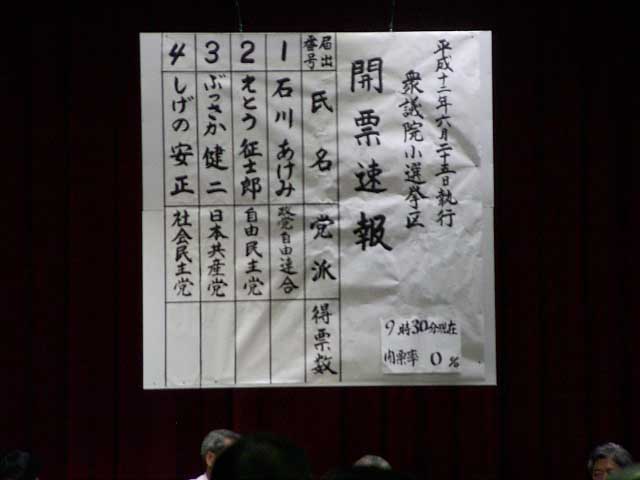 平成十二年六月二十五日執行
衆議院小選挙区
開票速報
9時30分現在
開票率 0%
届出番号 氏名 党派 得票数
1 石川 あけみ 政党自由連合
2 えとう 征士郎 自由民主党
3 ぶっさか 健二 日本共産党
4 しげの 安正 社会民主党